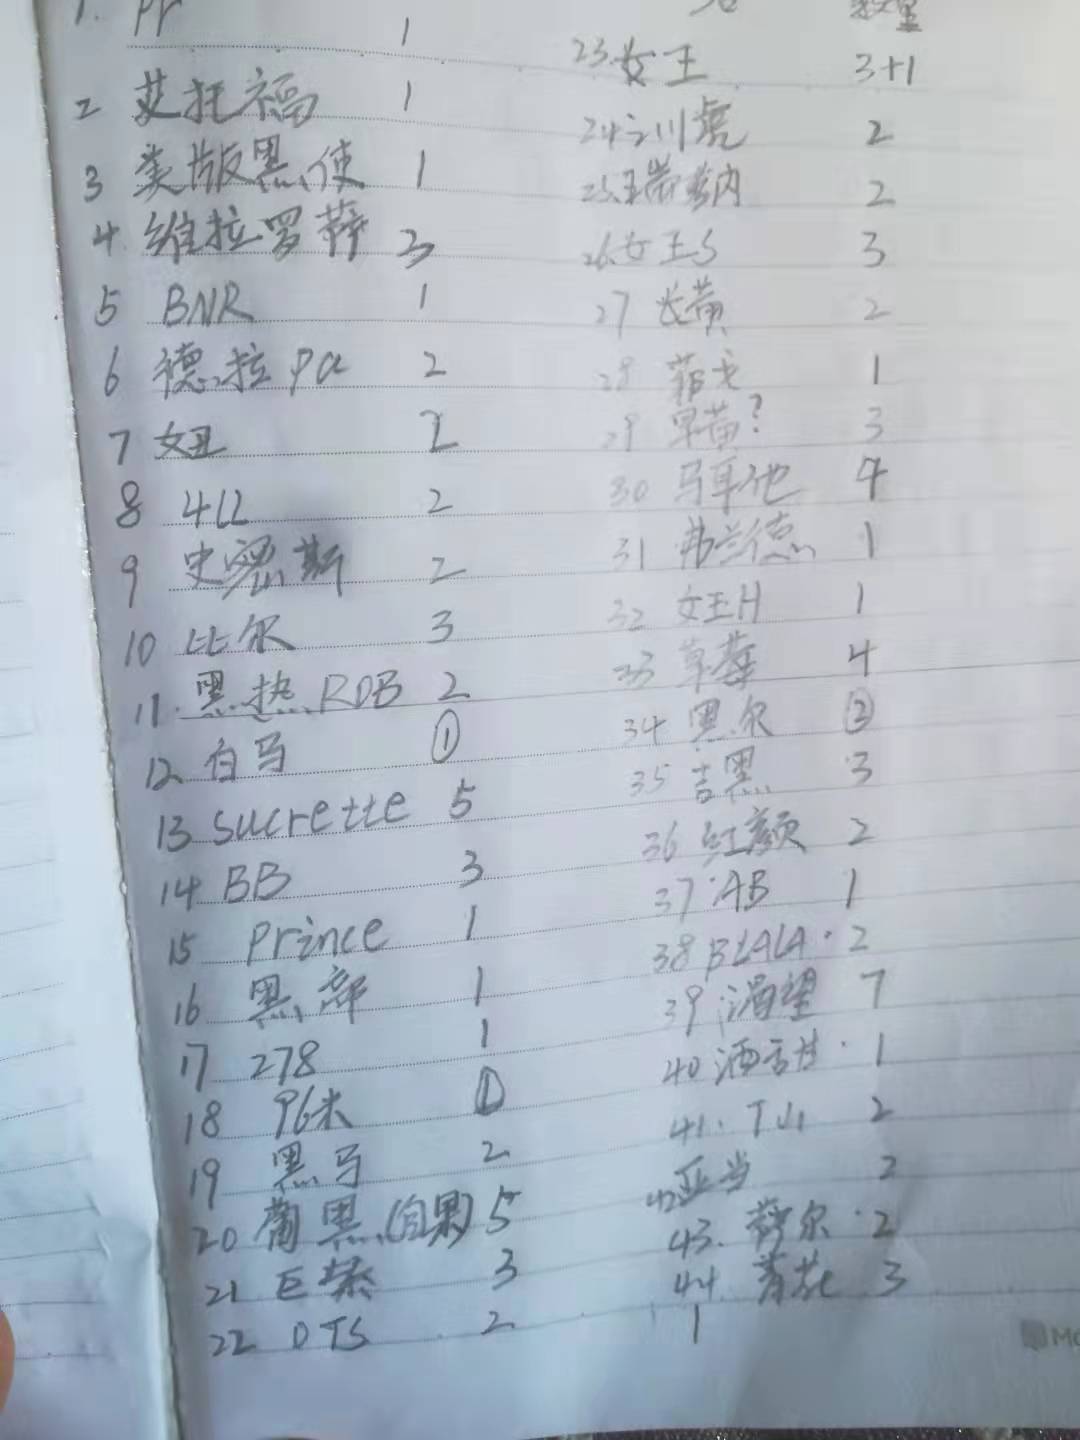 1. pr 1
2 艾托福 1
3 美版黑使 1
4. 维拉罗萨 3
5 BNR 1
6 德拉pa 2
7 女丑 2
8 4L2 2
9 史密斯 2
10 比尔 3
11. 黑热RDB 2
12 白马 ①
13 sucrette 5
14 BB 3
15 Prince 1
16 黑部 1
17 278 1
18 96米 ①
19 黑马 2
20 葡黑(自果) 5
21 巨紫 3
22 DTS 2
数量
23.女王 3+1
24 川崎 2
25.瑞纳 2
26.女王S 3
27 长黄 2
28 菲戈 1
29 早黄? 3
30 马耳他 4
31 弗兰德 1
32 女王H 1
33 草莓 4
34 黑尔 ②
35 吉黑 3
36 红颜 2
37.AB 1
38 BLALA. 2
39 渴望 7
40 酒甜. 1
41. T 2
42 亚当 2
43. 赫尔. 2
44. 青花 3
1